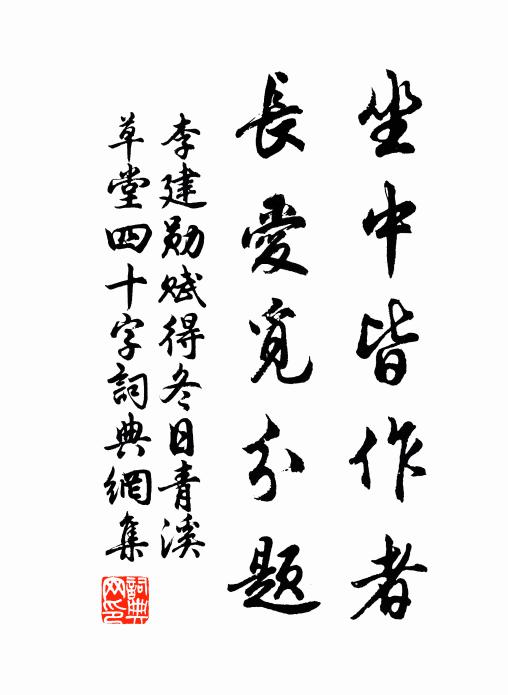 坐中皆作者
長愛覓分題
李建勛賦得冬日青溪
草堂四十字詞典網集
詞典
网印